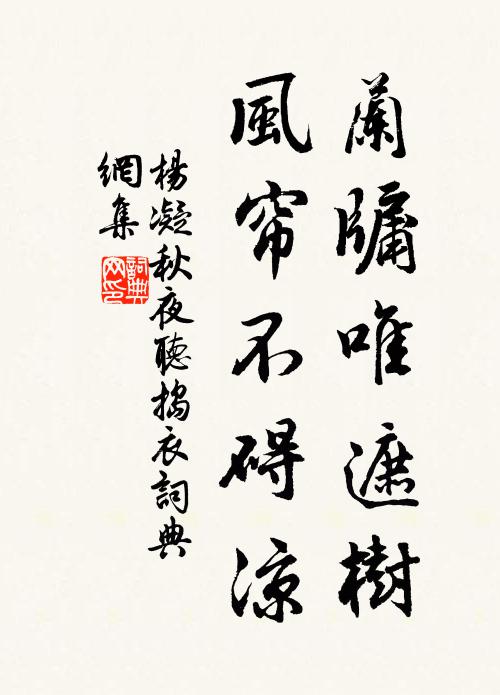 蘭牖唯遮樹
風帘不碍涼
楊凝秋夜聽搗衣詞典
網集
詞典
网印